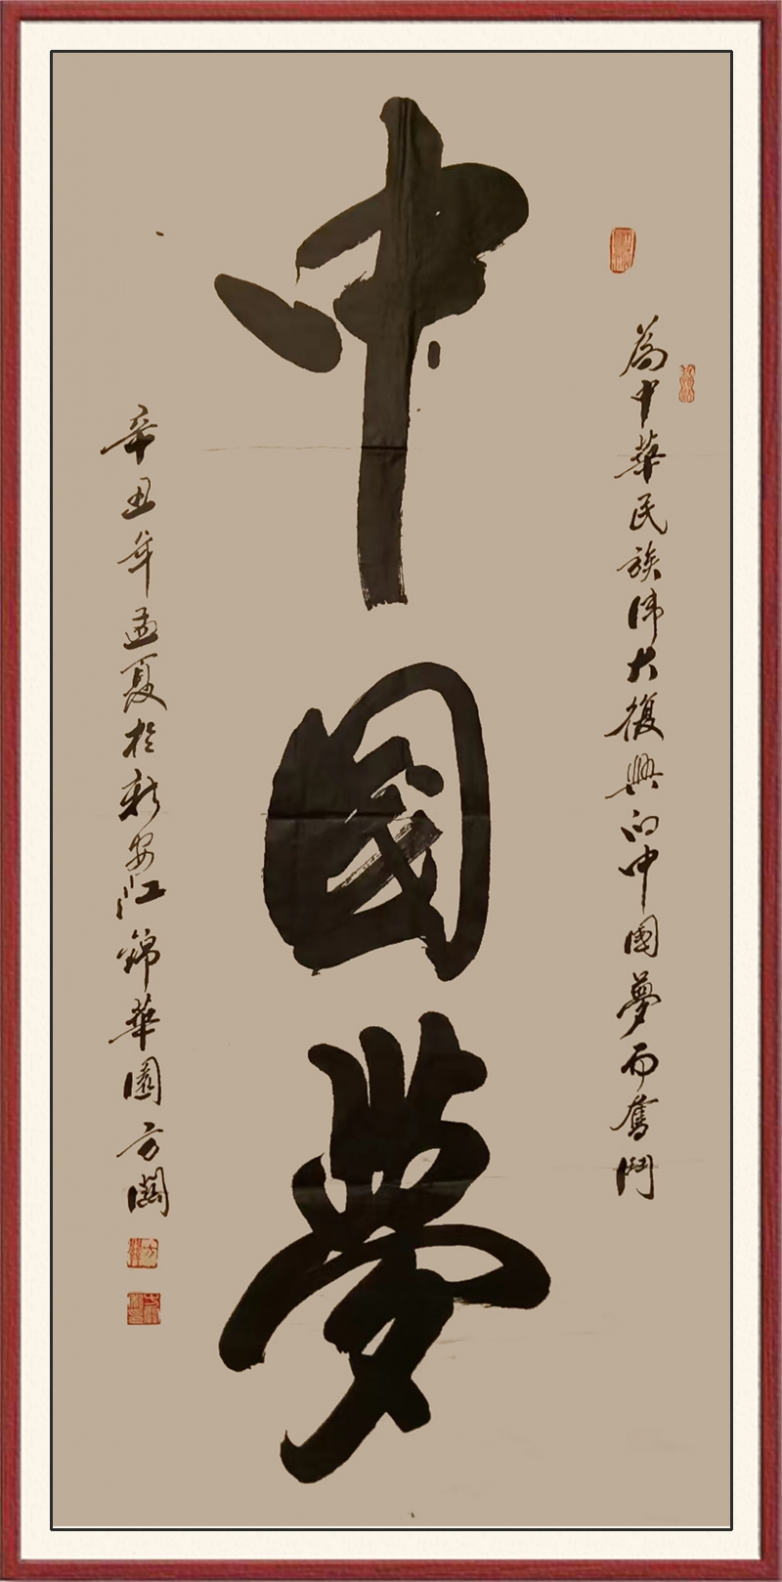 為中華民族偉大復興的中國夢而奮鬥
中國夢
辛丑年孟夏於新安江錦華園方闊